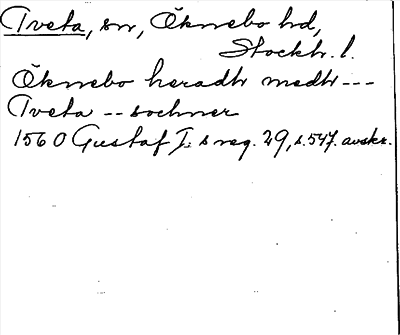 Tveta, sn, Öknebo hd,
Stockh. l.
Öknebo heradh medh ---
Tveta -- sochner
1560 Gustaf I:s reg. 29, s. 547. avskr.